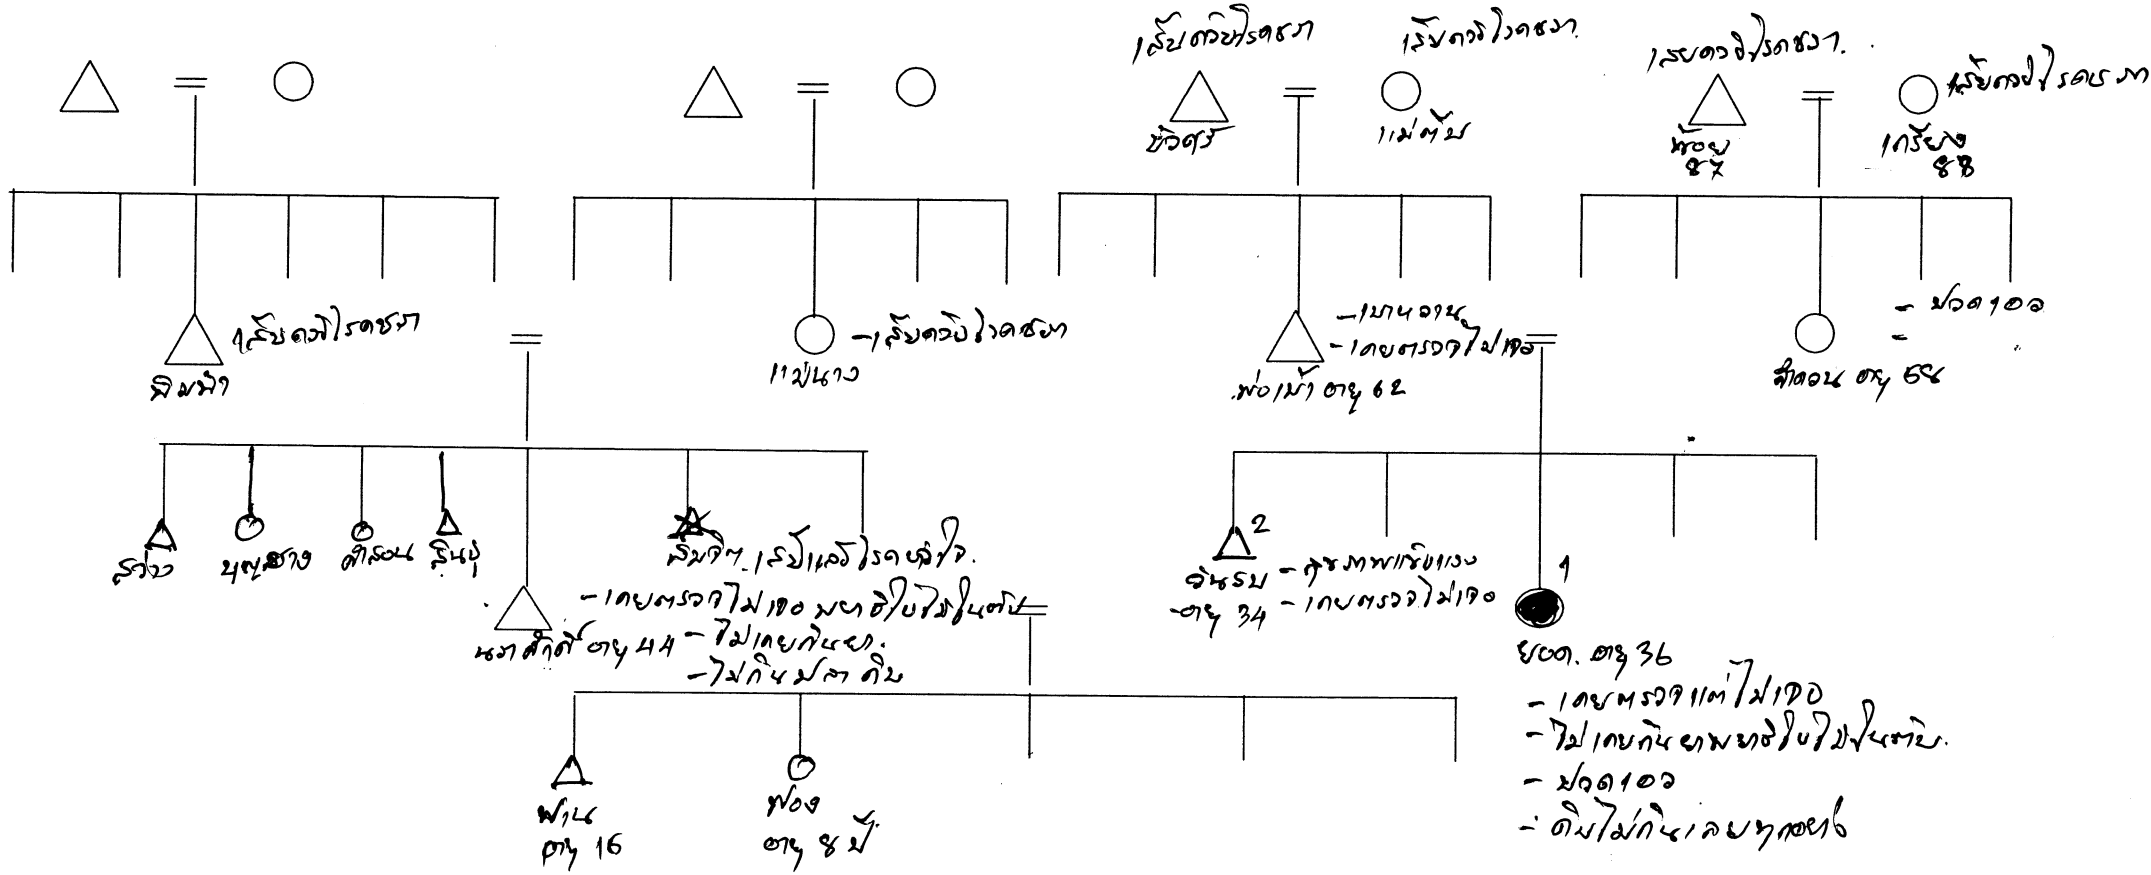 เสียด้วยโรคชรา
เสียด้วยโรคชรา
เสียด้วยโรคชรา
เสียด้วยโรคชรา
บัวศรี
แม่ตีบ
น้อย
87
เกรียง
88
เสียด้วยโรคชรา
พิมพา
- เสียด้วยโรคชรา
แม่นาง
- เบาหวาน
- เคยตรวจไม่เจอ
พ่อเบ้า อายุ 62
- ปวดเอว
-
คำดวน อายุ 58
สว่าง
บุญสาง
คำสอน
สินชู
สมจิต เสียแล้วโรคหัวใจ
นราศักดิ์ อายุ 44
- เคยตรวจไม่เจอพยาธิใบไม้ในตับ
- ไม่เคยกินยา
- ไม่กินปลาดิบ
2
วันรบ
อายุ 34
- สุขภาพแข็งแรง
- เคยตรวจไม่เจอ
1
ยอด. อายุ 36
- เคยตรวจแต่ไม่เจอ
- ไม่เคยกินยาพยาธิใบไม้ในตับ.
- ปวดเอว
- ดิบไม่กินเลยทุกอย่าง
ฟาน
อายุ 16
ฟอง
อายุ 8 ปี